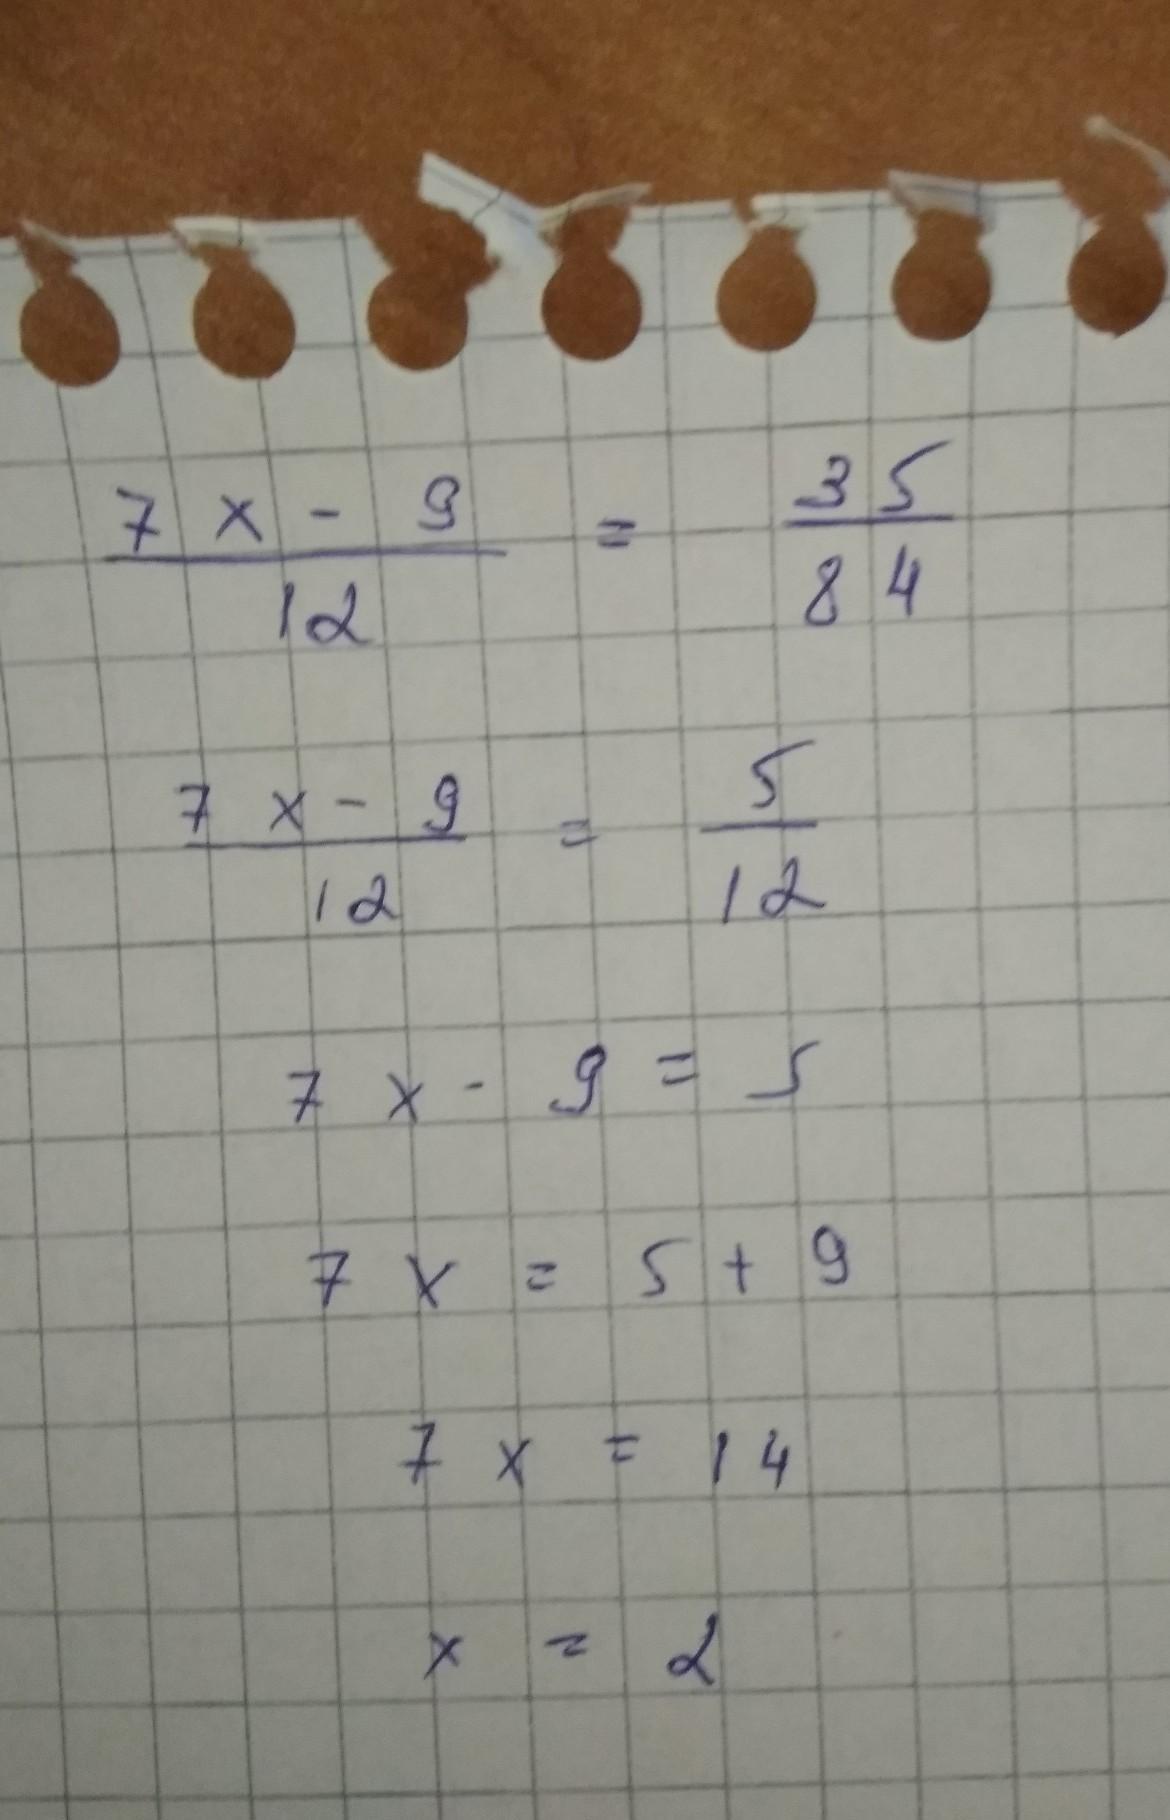 7x - 9 / 12 = 35 / 84
7x - 9 / 12 = 5 / 12
7x - 9 = 5
7x = 5 + 9
7x = 14
x = 2